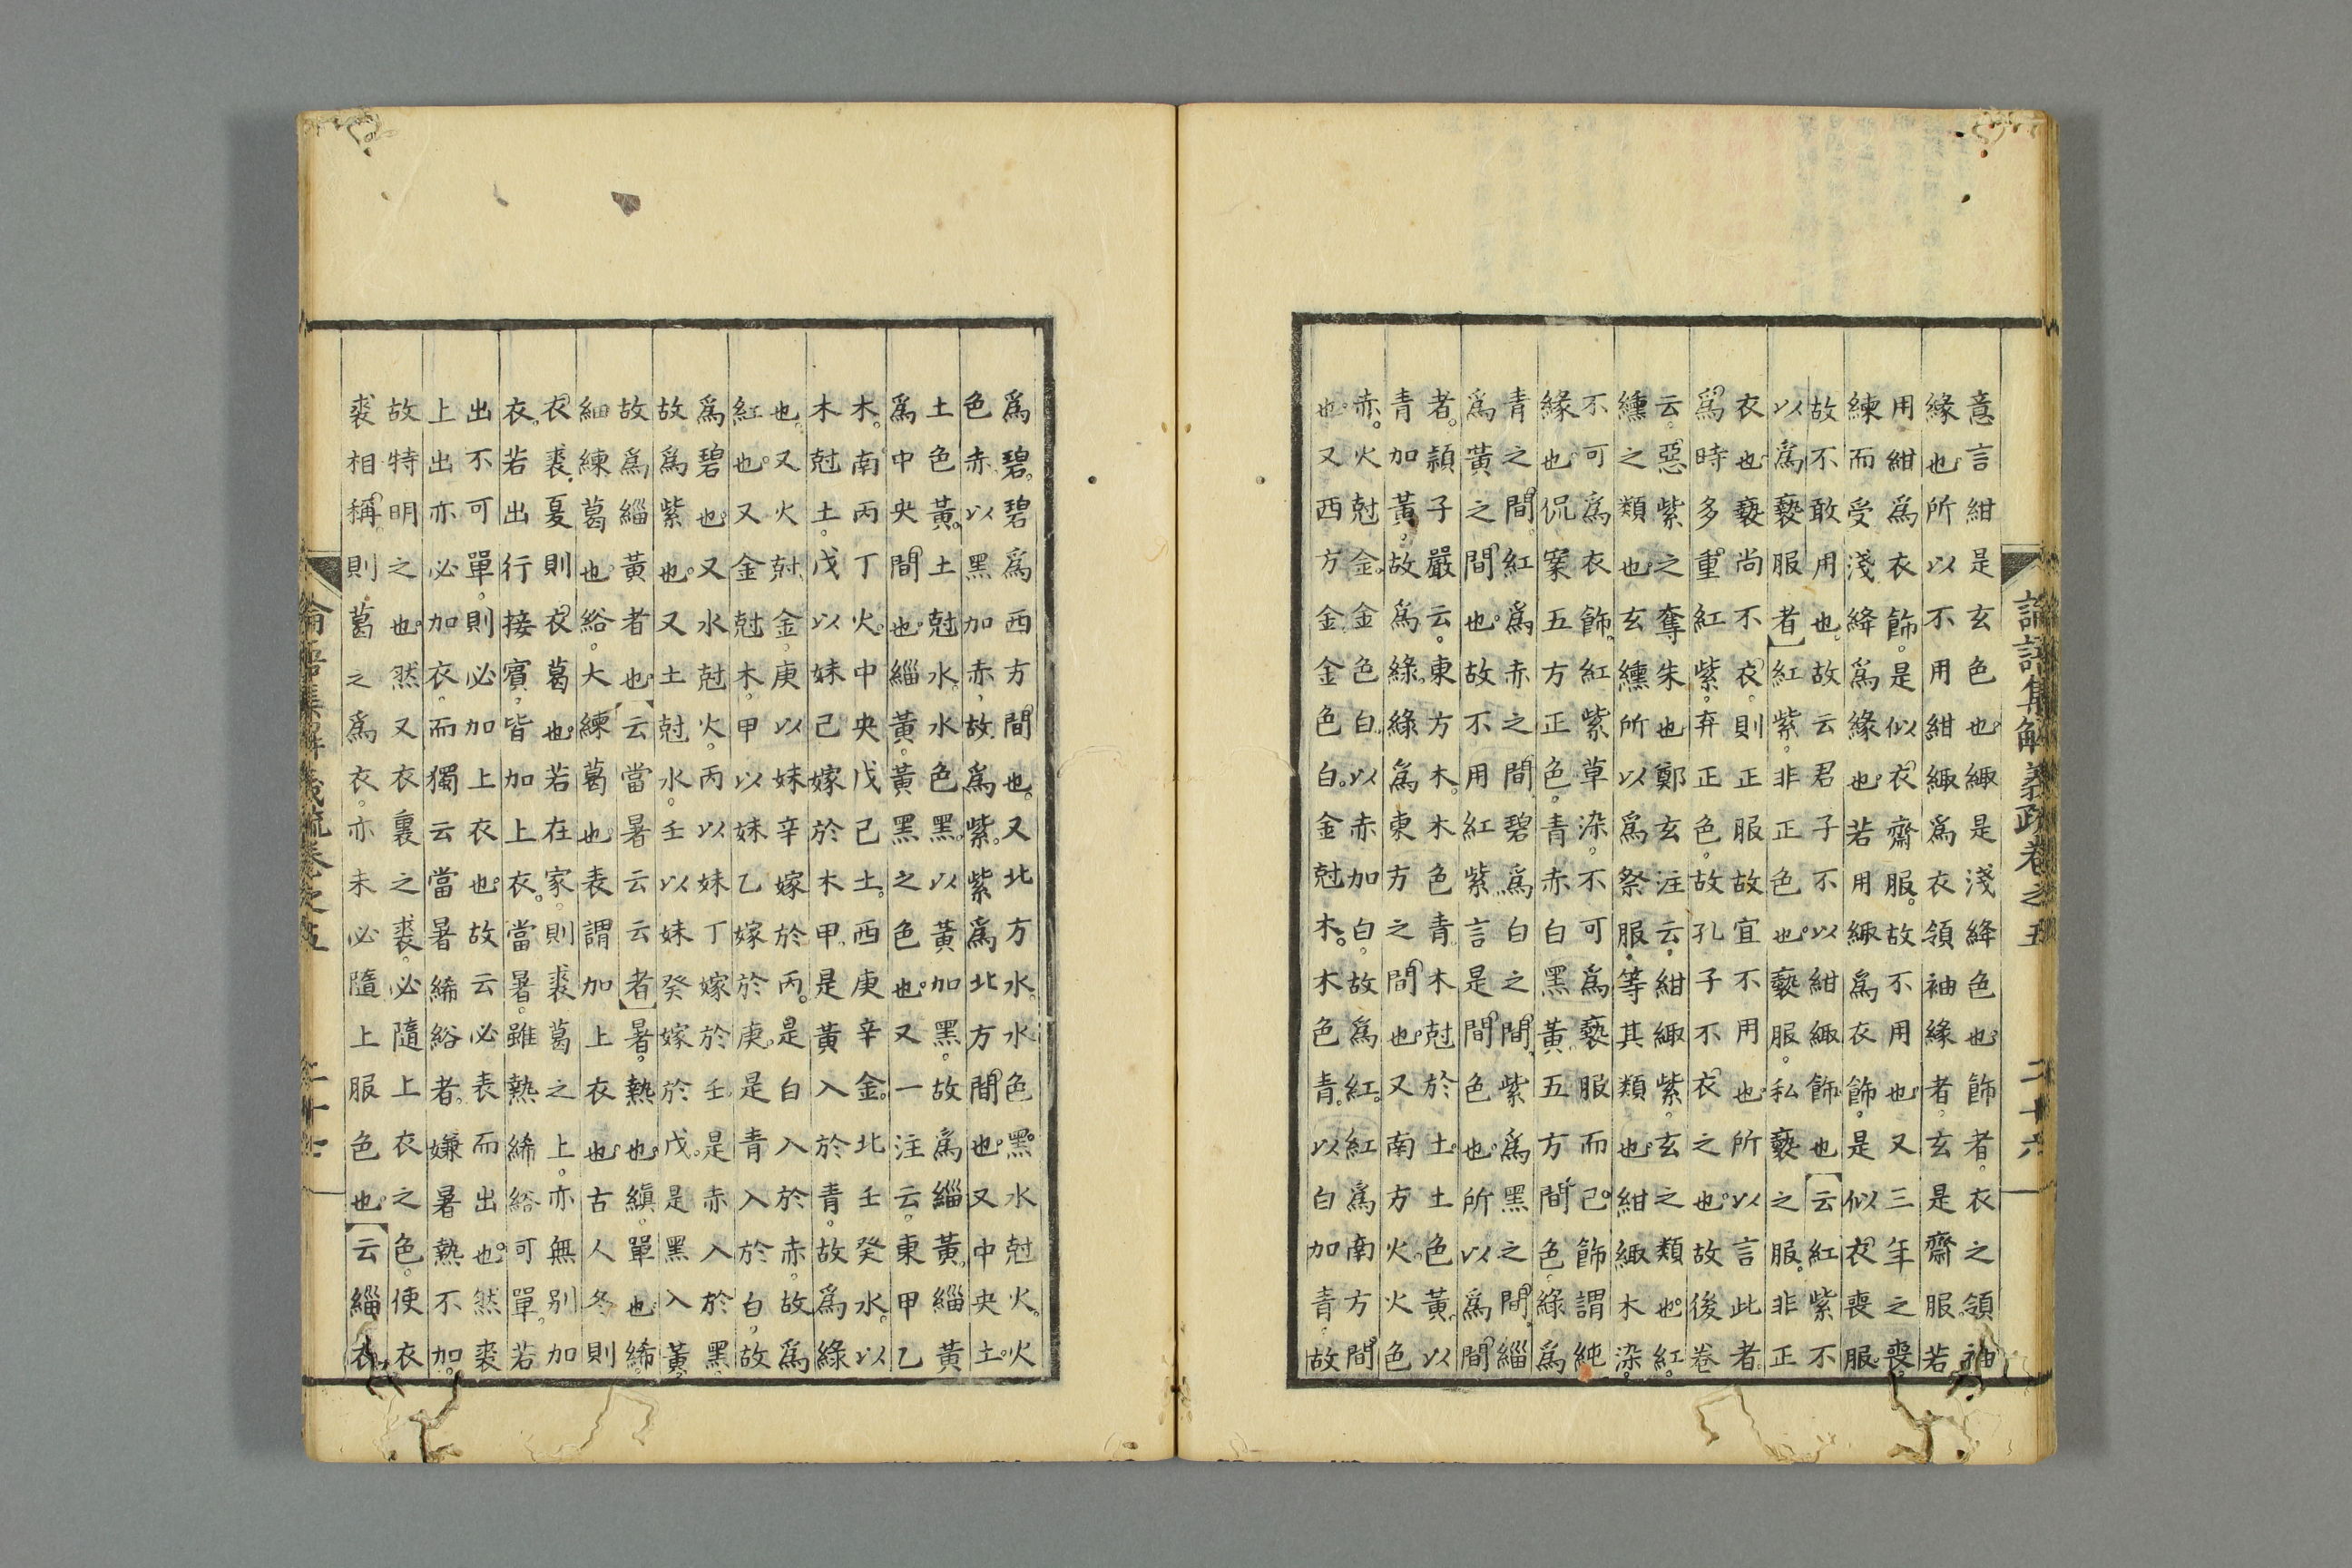 意言紺是玄色也緅是淺絳色也飾者衣之領袖
緣也所以不用紺緅爲衣領袖緣者玄是齋服若
用紺爲衣飾是似衣齋服故不用也又三年之喪
練而受淺絳爲緣也若用緅爲衣飾是似衣喪服
故不敢用也故云君子不以紺緅飾也【云紅紫不
以爲褻服者】紅紫非正色也褻服私褻之服非正
衣也褻尚不衣則正服故宜不用也所以言此者
爲時多重紅紫弃正色故孔子不衣之也故後卷
云惡紫之奪朱也鄭玄注云紺緅紫玄之類也紅
纁之類也玄纁所以爲祭服等其類也紺緅木染
不可爲衣飾紅紫草染不可爲褻服而已飾謂純
緣也侃案五方正色青赤白黑黃五方間色綠爲
青之間紅爲赤之間碧爲白之間紫爲黑之間緇
爲黃之間也故不用紅紫言是間色也所以爲間
者潁子嚴云東方木木色青木尅於土土色黃以
青加黃故爲綠綠爲東方之間也又南方火火色
赤火尅金金色白以赤加白故爲紅紅爲南方間
也又西方金金色白金尅木木色青以白加青故
論語集解義疏卷之五
二十六
爲碧碧爲西方間也又北方水水色黑水尅火火
色赤以黑加赤故爲紫紫爲北方間也又中央土
土色黃土尅水水色黑以黃加黑故爲緇黃緇黃
爲中央間也緇黃黃黑之色也又一注云東甲乙
木南丙丁火中央戊己土西庚辛金北壬癸水以
木尅土戊以妹己嫁於木甲是黃入於青故爲綠
也又火尅金庚以妹辛嫁於丙是白入於赤故爲
紅也又金尅木甲以妹乙嫁於庚是青入於白故
爲碧也又水尅火丙以妹丁嫁於壬是赤入於黑
故爲紫也又土尅水壬以妹癸嫁於戊是黑入黃
故爲緇黃者也【云當暑云云者】暑熱也縝單也絺
細練葛也綌大練葛也表謂加上衣也古人冬則
衣裘夏則衣葛也若在家則裘葛之上亦無別加
衣若出行接賓皆加上衣當暑雖熱絺綌可單若
出不可單則必加上衣也故云必表而出也然裘
上出亦必加衣而獨云當暑絺綌者嫌暑熱不加
故特明之也然又衣裏之裘必隨上衣之色使衣
裘相稱則葛之爲衣亦未必隨上服色也【云緇衣
論語集解義疏卷之五
二十七